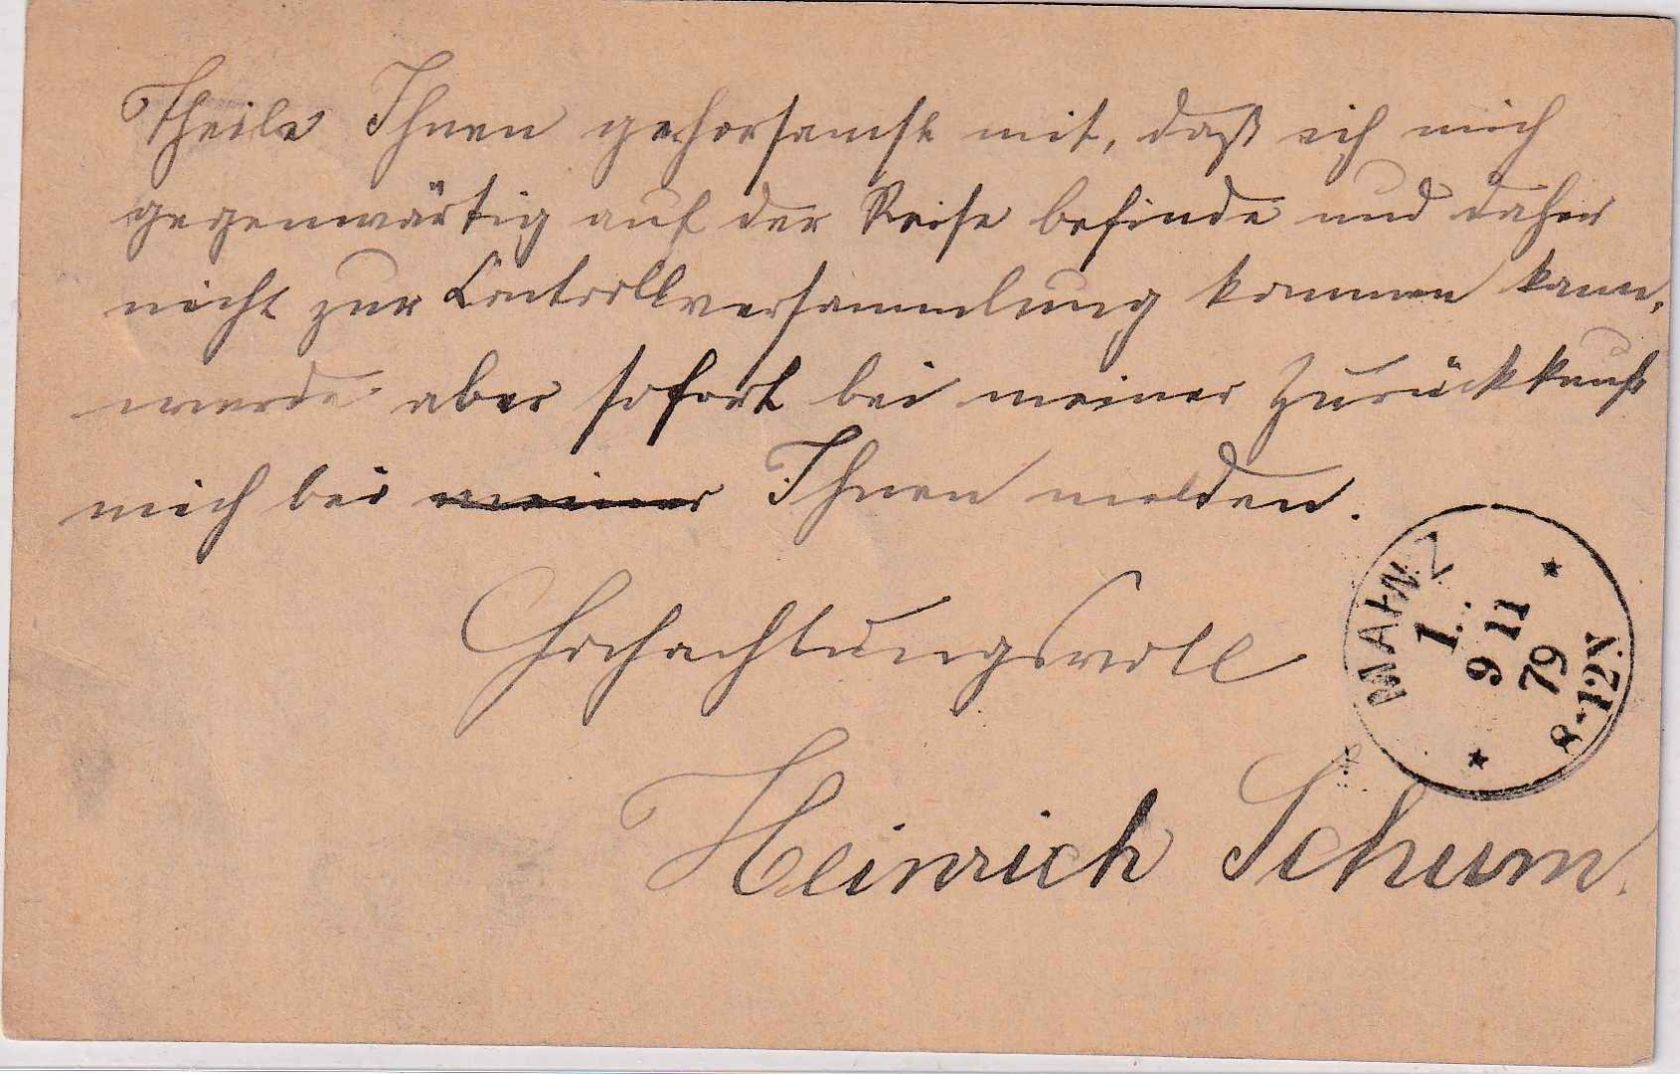 Theile Ihnen gehorsamst mit, daß ich mich
gegenwärtig auf der Reise befinde und daher
nicht zur Controllversammlung kommen kann,
werde aber sofort bei meiner Zurückkunft
mich bei meiner Ihnen melden.
Hochachtungsvoll
Heinrich Schum.
MAINZ
1.
9 11
79
8-12N